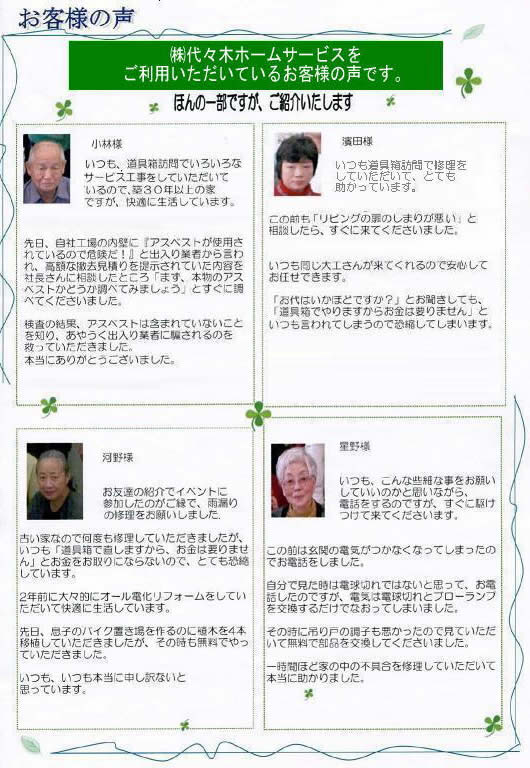 お客様の声
㈱代々木ホームサービスを
ご利用いただいているお客様の声です。
ほんの一部ですが、ご紹介いたします
小林様
いつも、道具箱訪問でいろいろな
サービス工事をしていただいて
いるので、築30年以上の家
ですが、快適に生活しています。
先日、自社工場の内壁に『アスベストが使用さ
れているので危険だ！』と出入り業者から言わ
れ、高額な撤去見積りを提示されていた内容を
社長さんに相談したところ「まず、本物のアス
ベストかどうか調べてみましょう」とすぐに調
べてくださいました。
検査の結果、アスベストは含まれていないこと
を知り、あやうく出入り業者に騙されるのを
救っていただきました。
本当にありがとうございました。
濱田様
いつも道具箱訪問で修理を
していただいて、とても
助かっています。
この前も「リビングの扉のしまりが悪い」と
相談したら、すぐに来てくださいました。
いつも同じ大工さんが来てくれるので安心して
お任せできます。
「お代はいかほどですか？」とお聞きしても、
「道具箱でやりますからお金は要りません」と
いつも言われてしまうので恐縮してしまいます。
河野様
お友達の紹介でイベントに
参加したのがご縁で、雨漏り
の修理をお願いしました.
古い家なので何度も修理していただきましたが、
いつも「道具箱で直しますから、お金は要りませ
ん」とお金をお取りにならないので、とても恐縮
しています。
2年前に大々的にオール電化リフォームをしてい
ただいて快適に生活しています。
先日、息子のバイク置き場を作るのに植木を4本
移植していただきましたが、その時も無料でやっ
ていただきました。
いつも、いつも本当に申し訳ないと
思っています。
星野様
いつも、こんな些細な事をお願い
していいのかと思いながら、
電話をするのですが、すぐに駆け
つけて来てくださいます。
この前は玄関の電気がつかなくなってしまったの
でお電話をしました。
自分で見た時は電球切れではないと思って、お電
話したのですが、電気は電球切れとブローランプ
を交換するだけでなおってしまいました。
その時に吊り戸の調子も悪かったので見ていただ
いて無料で部品を交換してくださいました。
一時間ほど家の中の不具合を修理していただいて
本当に助かりました。